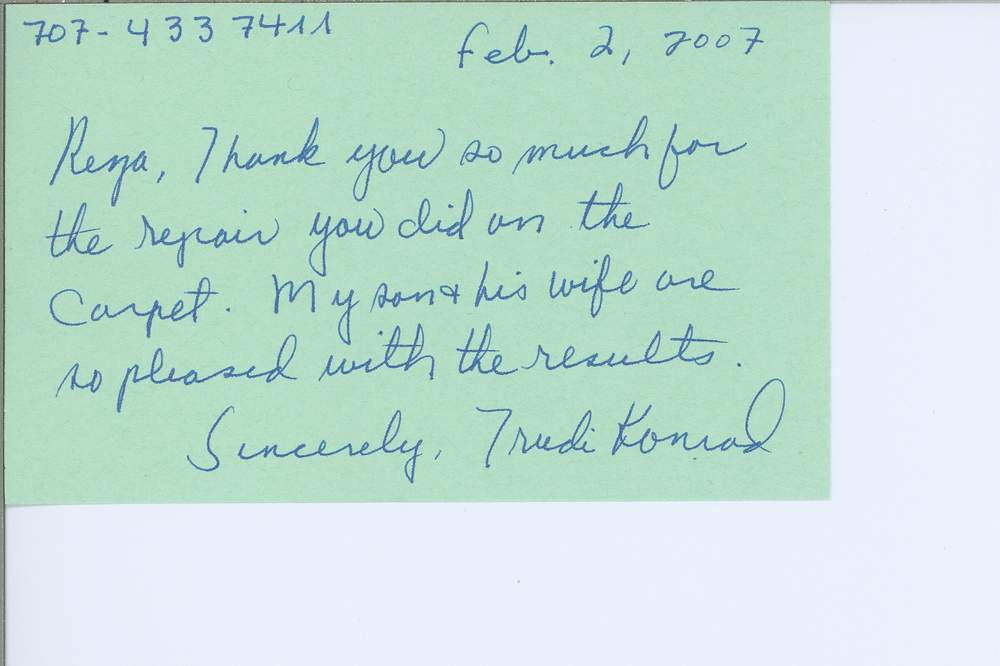 707-433 7411
Feb. 2, 2007
Reza, Thank you so much for
the repair you did on the
Carpet. My son & his wife are
so pleased with the results.
Sincerely, Trudi Konrad